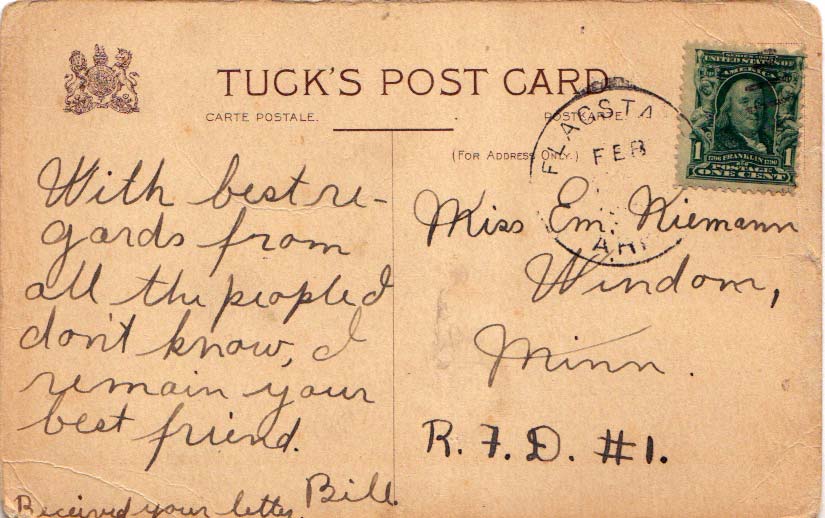 TUCK'S POST CARD
CARTE POSTALE.
POSTKARTE.
(FOR ADDRESS ONLY.)
SERIES 1902
UNITED STATES OF
AMERICA
1 1706 FRANKLIN 1790 1
POSTAGE
ONE CENT
FLAGSTA
FEB
ARI
With best re-
gards from
all the people I
don't know, I
remain your
best friend.
Bill.
Received your letter.
Miss Em. Niemann
Windom,
Minn.
R.F.D. #1.